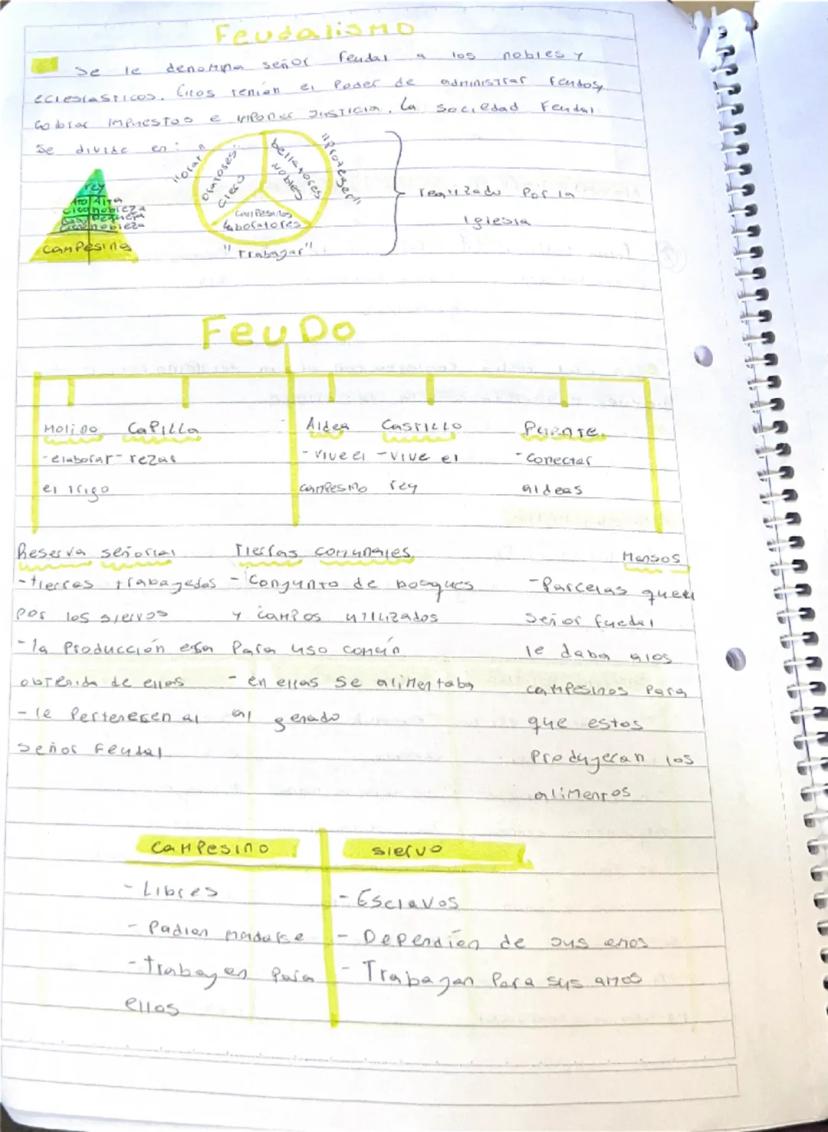 Feudalismo
Se le denomina señor feudal a los nobles y
eclesiasticos. Ellos tenian el Poder de administrar feudos,
cobrar impuestos e imponer justicia. La sociedad Feudal
Se divide en:
"orar"
oratores:
Clero
bellatores
nobles
"Proteger"
campesinos
laboratores
"Trabajar"
realizado Por la
Iglesia
rey
Alta
nobleza
nobleza
campesino
FeuDo
Molino Capilla Aldea Castillo Puente
-elaborar -rezar -vive el -vive el -conectar
el trigo campesino rey aldeas
Reserva señorial Tierras comunales Mansos
-tierras trabagedas -conjunto de bosques -Parcelas que el
por los siervos y campos utilizados señor fuedal
-la Producción era Para uso común le daba a los
obtenida de ellos -en ellas se alimentaba campesinos Para
-le Pertenecen al al genado que estos
señor Feudal Produgeran los
alimentos
campesino siervo
-Libres -Esclavos
-Padian mudarse -Dependíen de sus amos
-trabagen Para -Trabagan Para sus amos
ellos